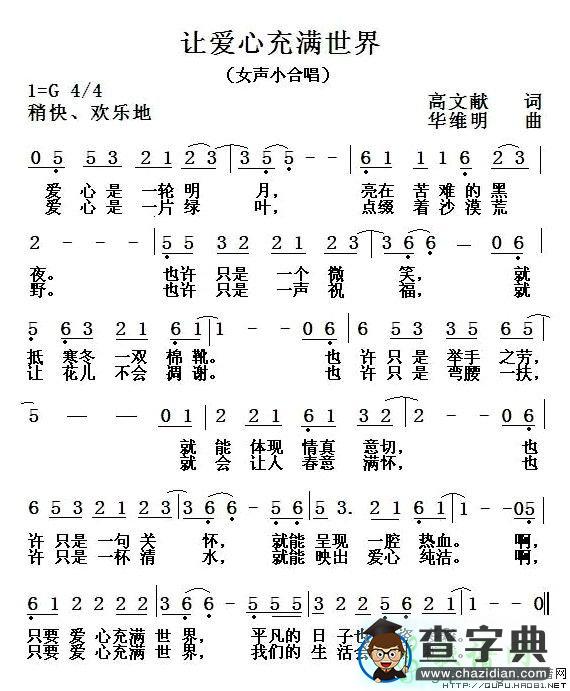 让爱心充满世界
（女声小合唱）
1=G 4/4
稍快、欢乐地
高文献 词
华维明 曲
0 5 5 3 2 1 2 3 3 5 5 - - 6 1 1 1 6 2 3
爱 心 是 一轮 明 月， 亮在 苦 难 的 黑
爱 心 是 一片 绿 叶， 点缀 着 沙 漠 荒
2 - - - 5 5 3 2 2 1 2 3 3 6 6 - 0 6
夜。 也许 只是 一个 微 笑， 就
野。 也许 只是 一声 祝 福， 就
5 6 3 2 1 6 1 1 - - 0 6 5 5 3 2 1 0 2 5
抵 寒冬 一双 棉靴。 也 许 只是 举手 之劳，
让 花儿 不会 凋谢。 也 许 只是 弯腰 一扶，
5 — — 0 1 2 2 1 6 1 3 2 2 - 0 6
就 能 体现 情真 意切， 也
就 会 让人 春意 满怀， 也
6 5 3 2 1 2 3 3 6 6 - 0 6 5 3. 2 1 6 1 1 - - 0 5
许 只是 一句 关 怀， 就能 呈现 一腔 热血。 啊，
许 只是 一杯 清 水， 就能 映出 爱心 纯洁。 啊，
6 1 2 2 2 2 3 6 6 - 5 5 5
只要 爱 心充满 世 界， 平凡的 日 子也
只要 爱 心充满 世 界， 我们的 生 活会
查字典
www.chazidian.com
http://QUPU.HAO81.NET